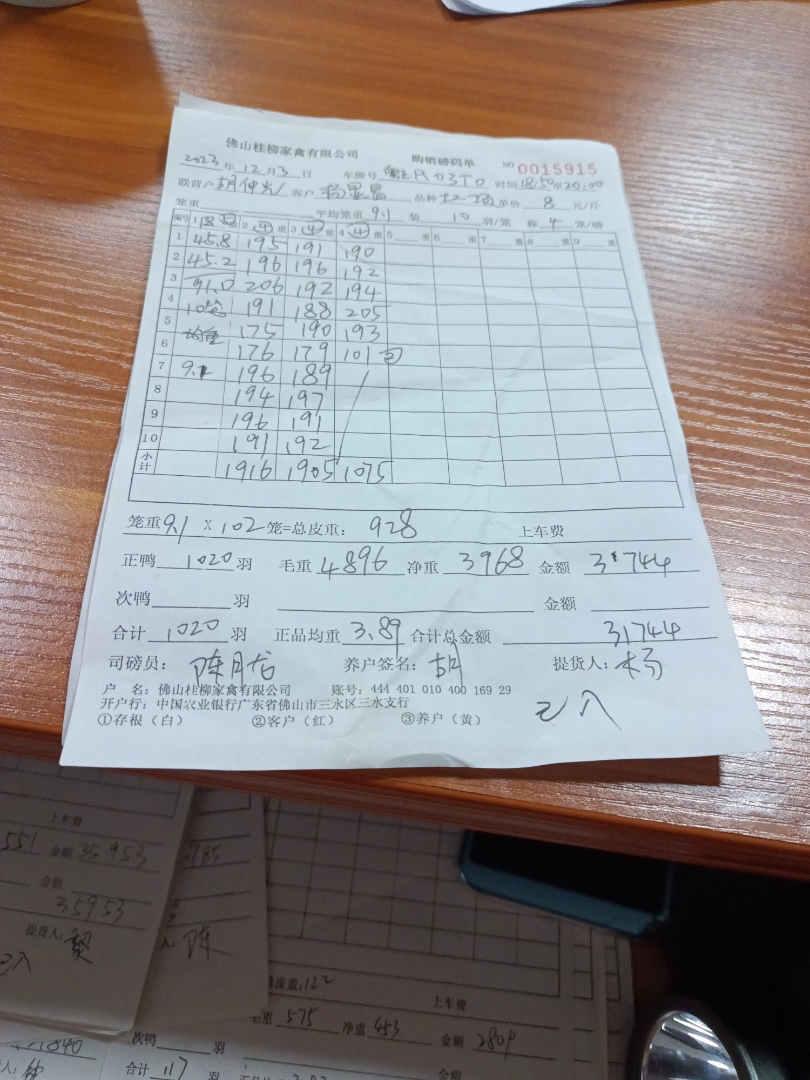 佛山桂柳家禽有限公司 购销磅码单 NO 0015915
2023年12月3日 车牌号 R03T0 时间18:50至20:00
联营户 胡仲光 客户 杨显昌 品种 单价 8 元/斤
笼重 平均笼重 9.1 装 10 羽/笼 称 4 笼/磅
编号 1 重 2 ④ 重 3 ④ 重 4 ④ 重 5 重 6 重 7 重 8 重 9 重
1 45.8 195 191 190
2 45.2 196 196 192
3 91.0 206 192 194
4 10笼 191 188 205
5 均重 175 190 193
6 176 179 101 ②
7 9.1 196 189
8 194 197
9 196 191
10 191 192
小计 1916 1905 1075
笼重 9.1 X 102 笼=总皮重: 928 上车费
正鸭 1020 羽 毛重 4896 净重 3968 金额 31744
次鸭 羽 金额
合计 1020 羽 正品均重 3.89 合计总金额 31744
司磅员: 陈月龙 养户签名: 胡 提货人: 杨
户 名: 佛山桂柳家禽有限公司 账号: 444 401 010 400 169 29
开户行: 中国农业银行广东省佛山市三水区三水支行
①存根(白) ②客户(红) ③养户(黄) 已入
上车费
551 金额 35953 785
金额
35953
提货人: 黎 人: 陈
已入
皮重: 122
上车费
重 575 净重 453 金额 2809
次鸭 羽 金额
1840 合计 117 羽